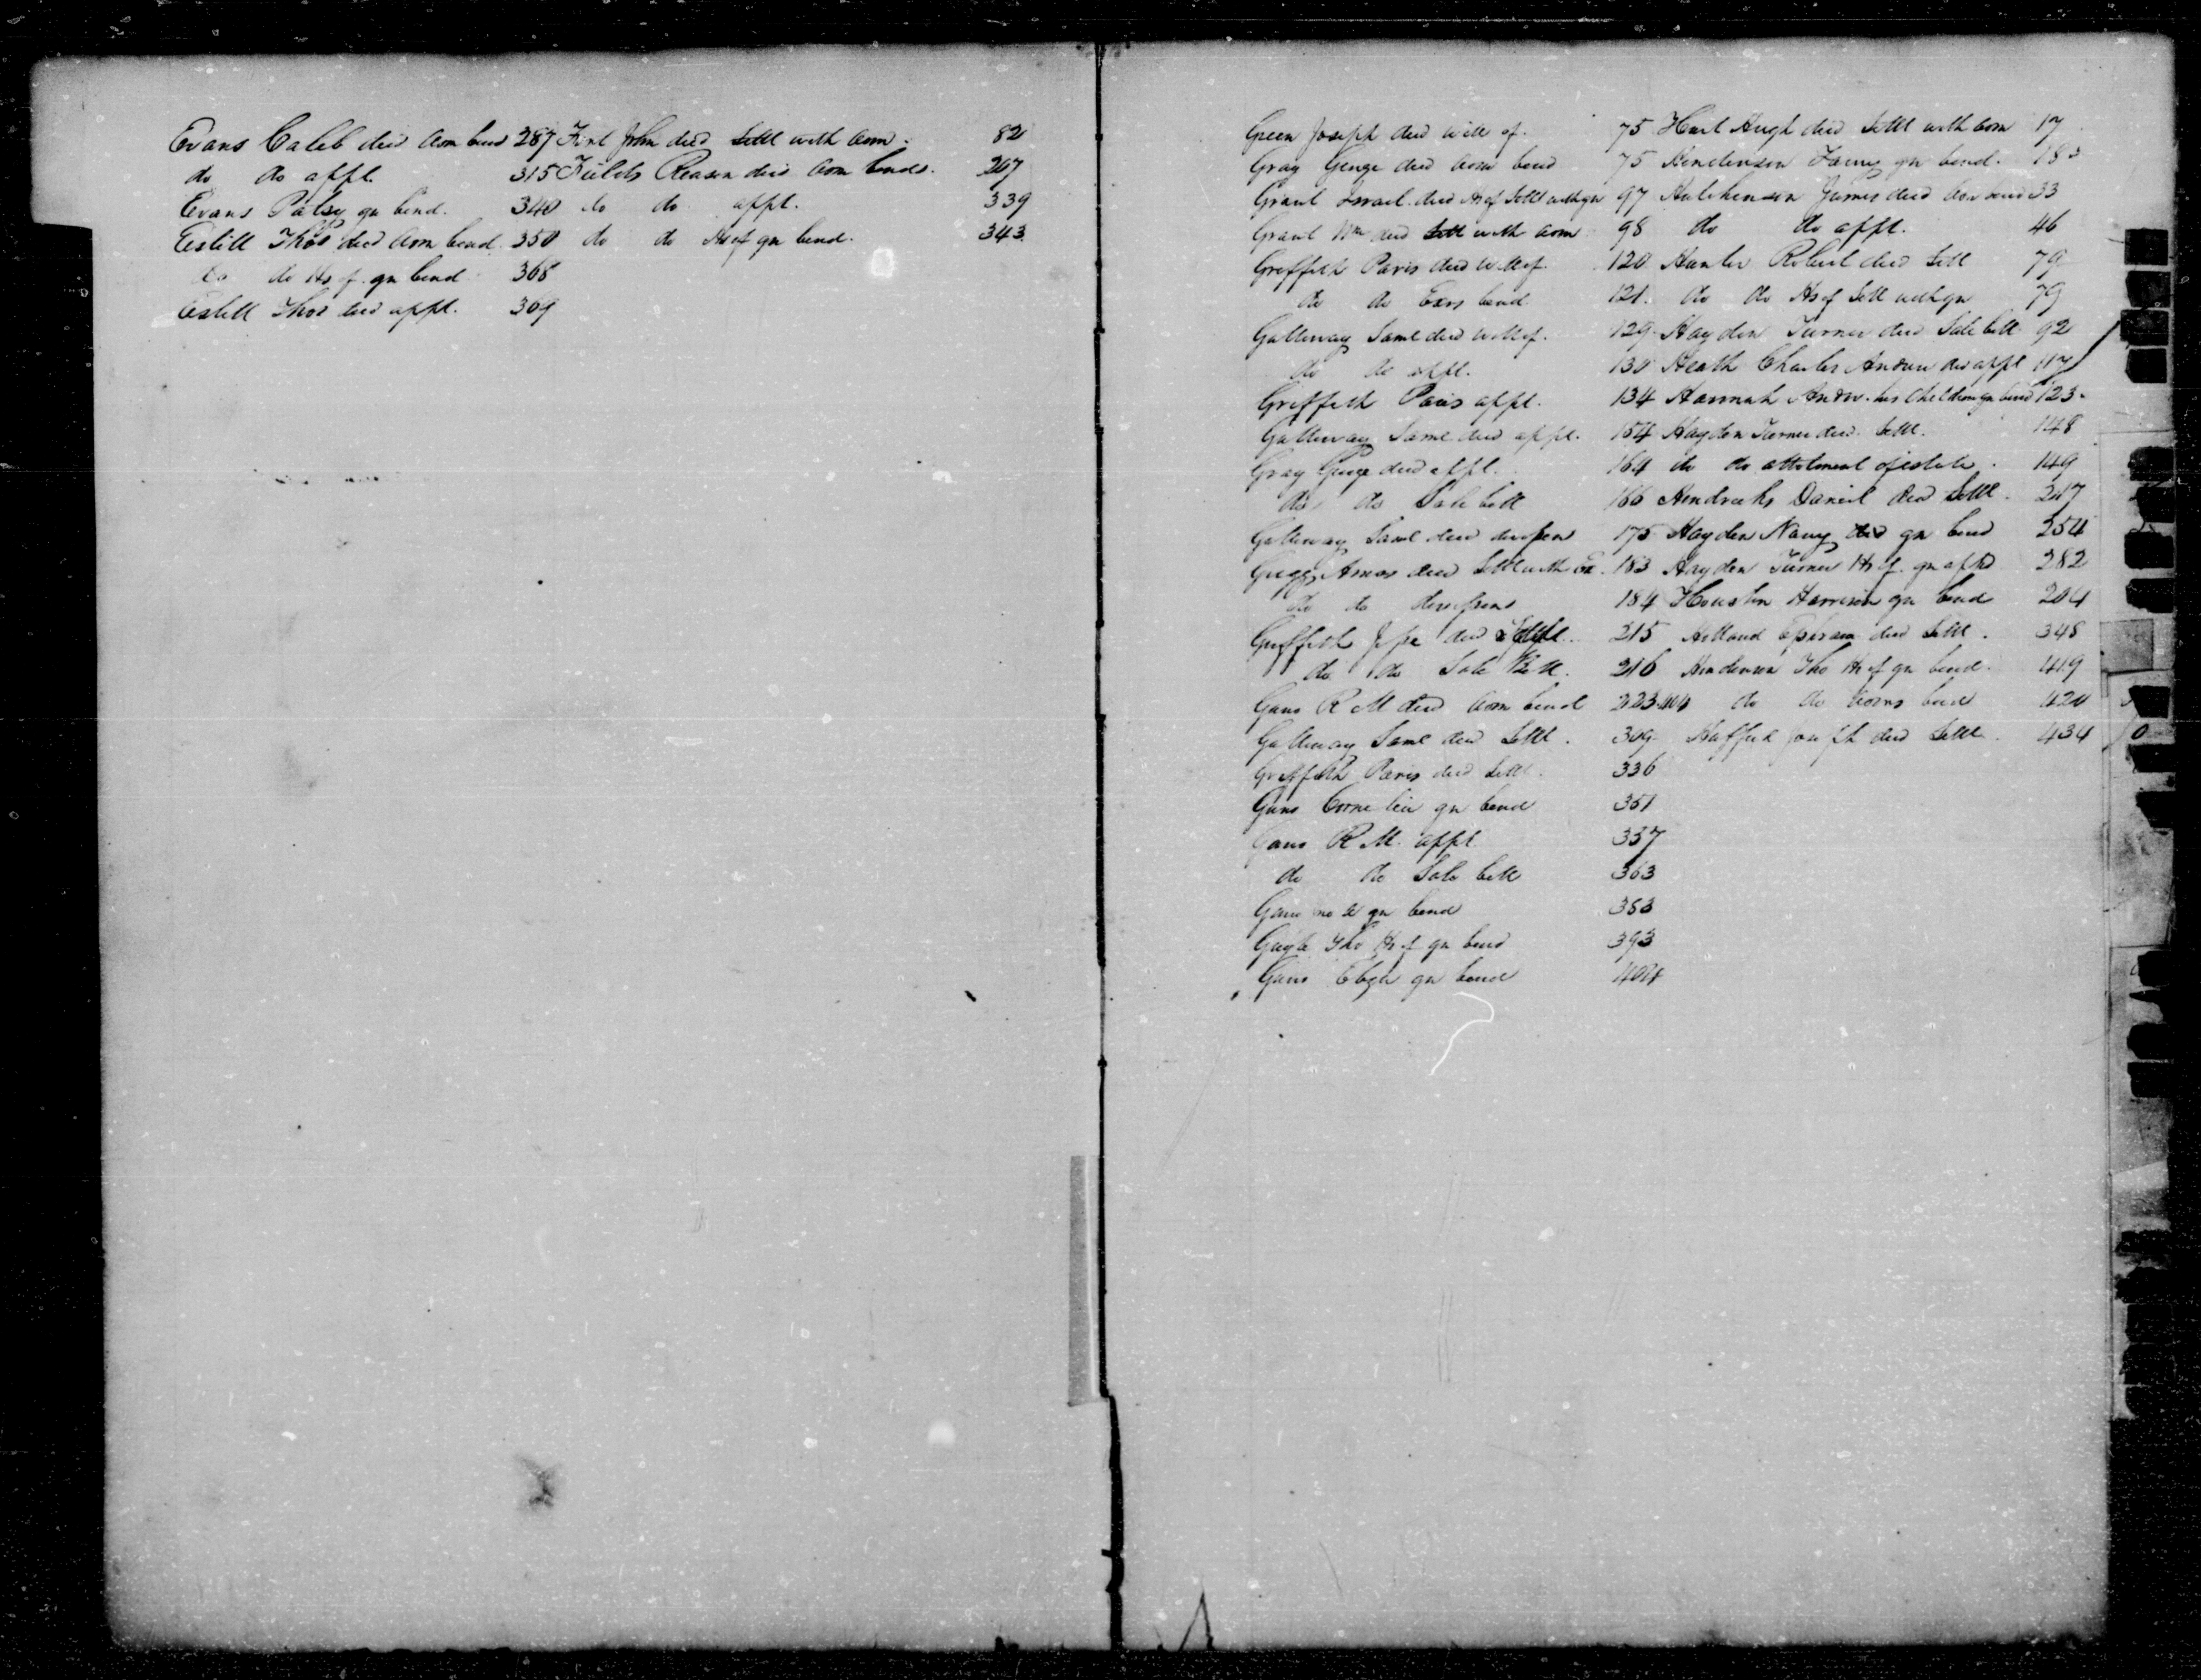 Evans Caleb decd adm bond 287
do do appt. 315
Evans Patsy gn bond. 340
Estill Thos decd adm bond. 350
do do Hs of gn bond 368
Estill Thos decd appt. 369
Fint John decd Settl with adm. 82
Fields Reason decd adm bond. 207
do do appt. 339
do do Hs of gn bond. 343
Green Joseph decd will of. 75
Gray George decd adm bond 75
Grant Israel decd Hs of Settl with gn 97
Grant Wm decd Settl with adm 98
Griffith Paris decd will of. 120
do do Exrs bond 121.
Galloway Saml decd will of. 129.
do do appt. 130
Griffith Paris appt. 134
Galloway Saml decd appt. 154
Gray George decd appt. 164
do do Sale bill 166
Galloway Saml decd 175
Amos decd Settl with Ex. 183
do do 184
Griffith decd 215
do do Sale Bill. 216
Gano R M decd adm bond 223
Galloway Saml decd Settl. 309
Griffith Paris decd Settl. 336
Gano Cornelia gn bond 351
Gano R M. appt 357
do do Sale bill 363
Gano gn bond 383
Tho Hs of gn bond 393
Gano gn bond 404
Hart Hugh decd Settl with adm 17
Henderson gn bond. 18
Hutchenson James decd adm bond 33
do do appt. 46
Hunter Robert decd Settl 79
do do Hs of Settl with gn 79
Hayden Turner decd Sale bill 92
Heath Charles Andrew decd appt 117
Hannah Andw. his Children gn bond 123.
Hayden Turner decd. Settl. 148
do do allotment of estate. 149
Hendricks Daniel decd Settl. 247
Hayden Nancy gn bond 254
Hayden Turner Hs of. gn 282
Houston Harrison gn bond 204
Holland Ephraim decd Settl. 348
Henderson Tho Hs of gn bond. 419
do do adms bond 420
Joseph decd Settl. 434